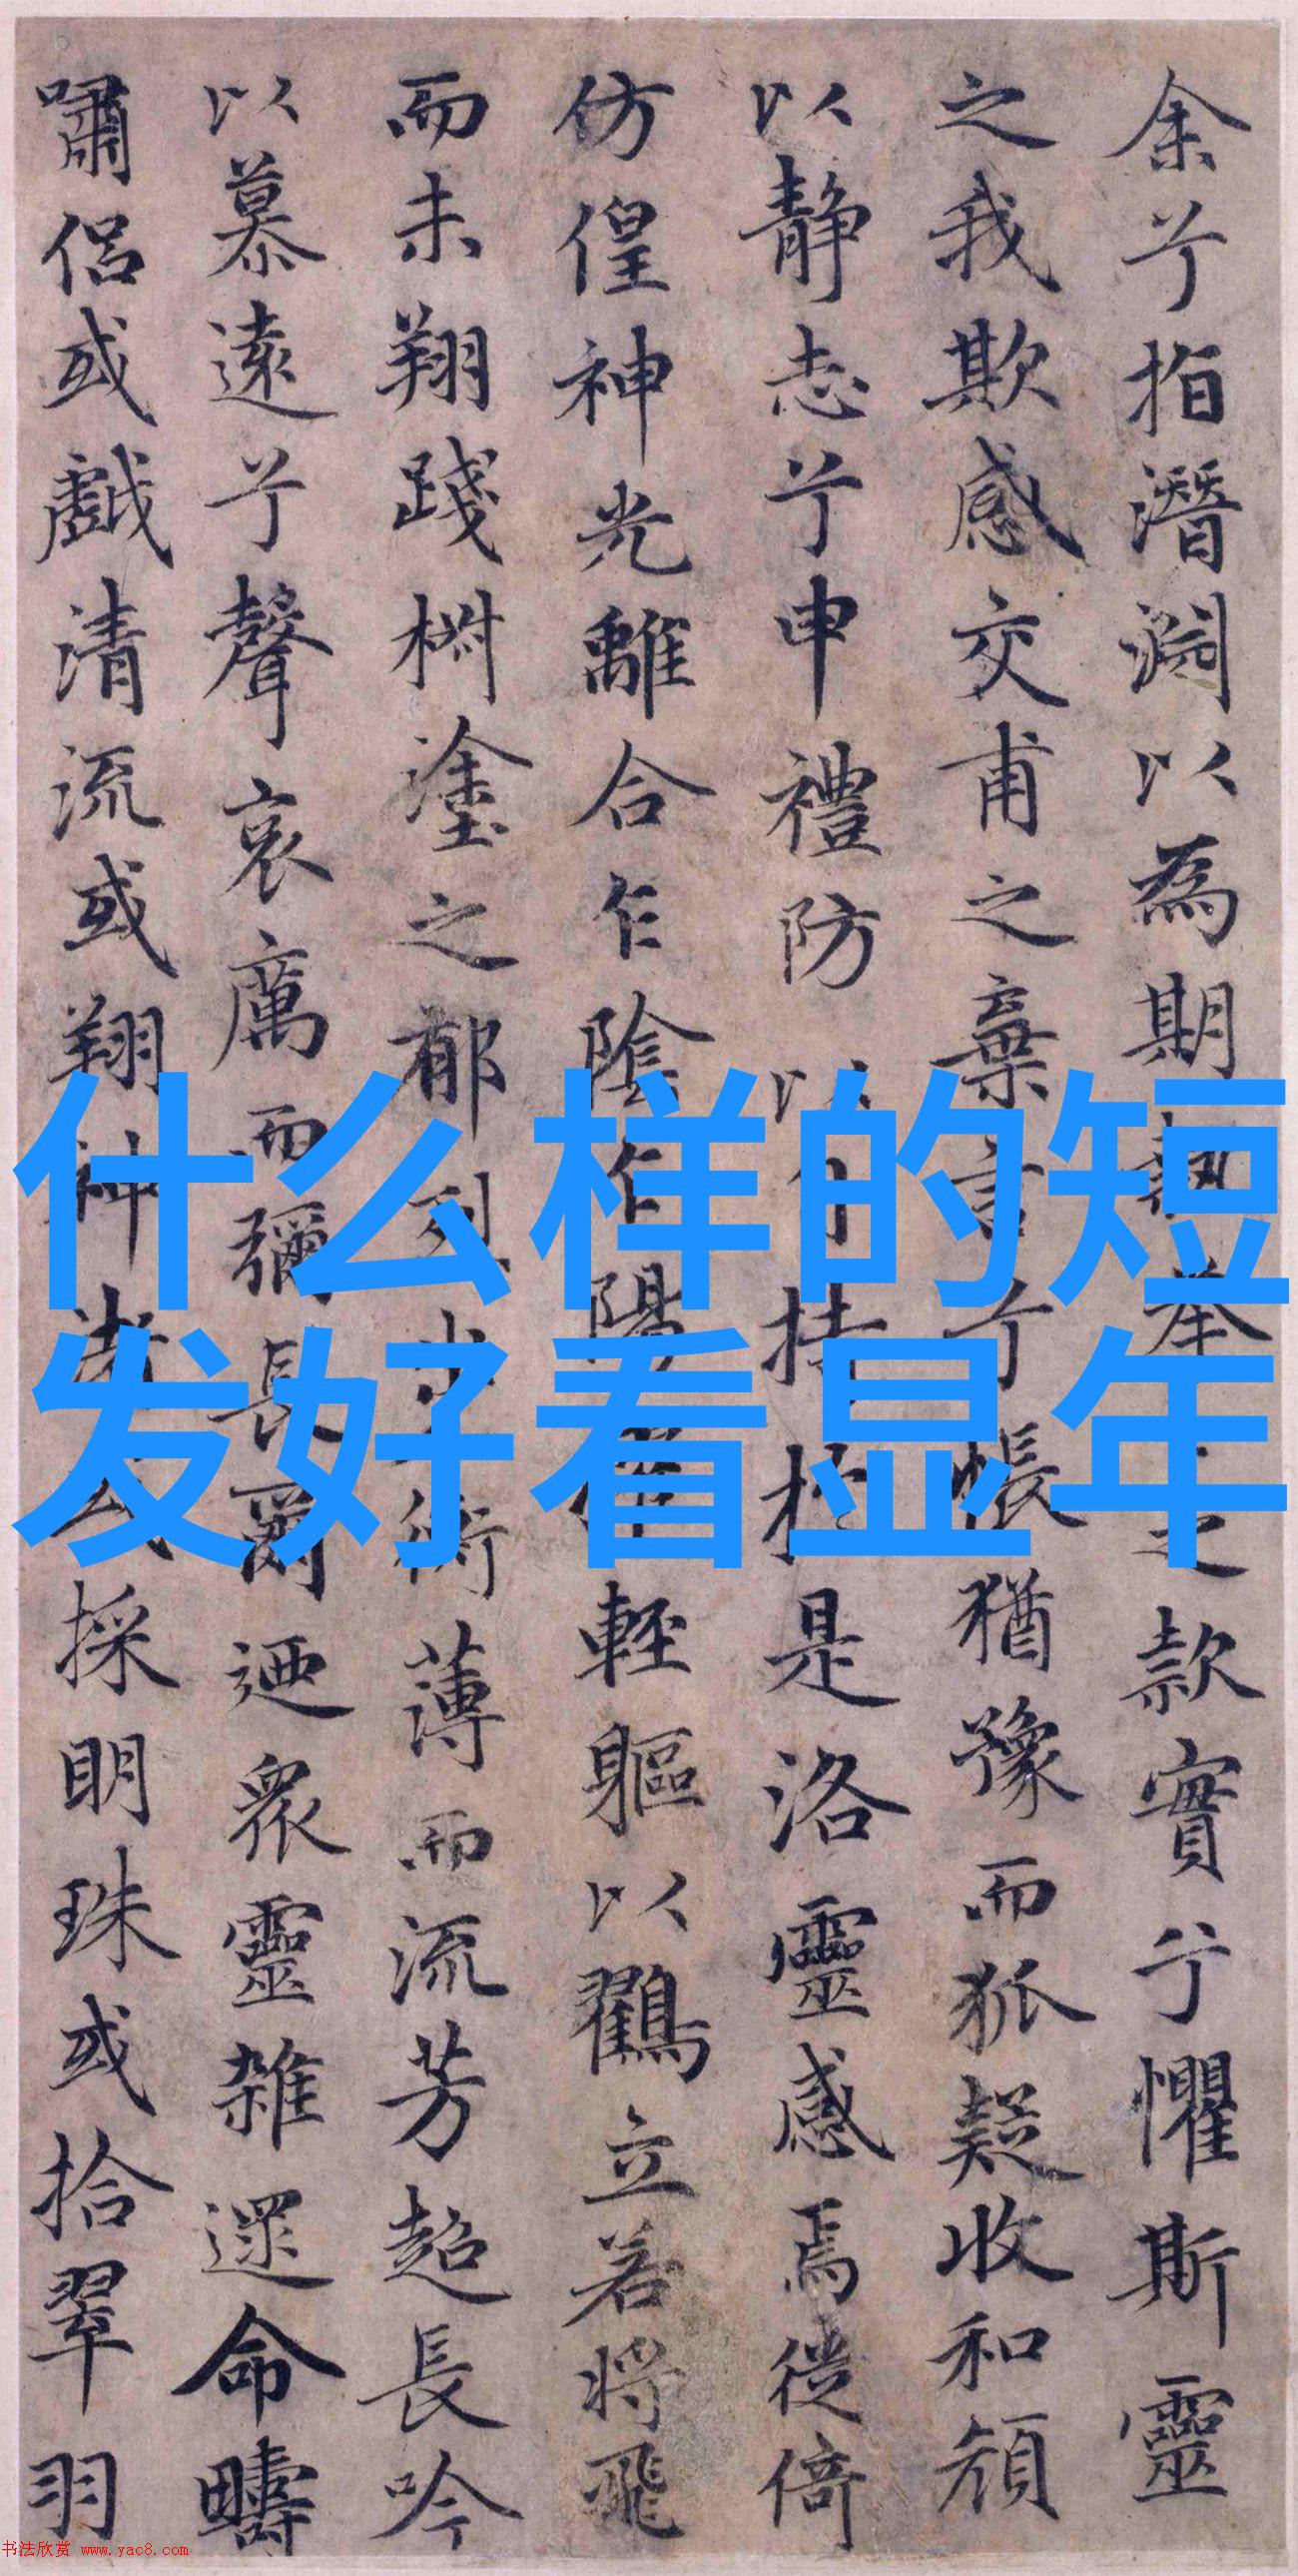 余兮指潛淵以為期執眷々之款實兮懼斯靈
之我欺感交甫之棄言兮悵猶豫而狐疑收和顏
以靜志兮申禮防以自持於是洛靈感焉徙倚
仿偟神光離合乍陰乍陽輕軀以鶴立若將飛
而未翔踐椒塗之郁烈步衡薄而流芳超長吟
以慕遠兮聲哀厲而彌長爾迺眾靈雜遝命疇
嘯侶或戲清流或翔神渚或採明珠或拾翠羽
什么样的短
发好看显年
书法欣赏 www.yac8.com